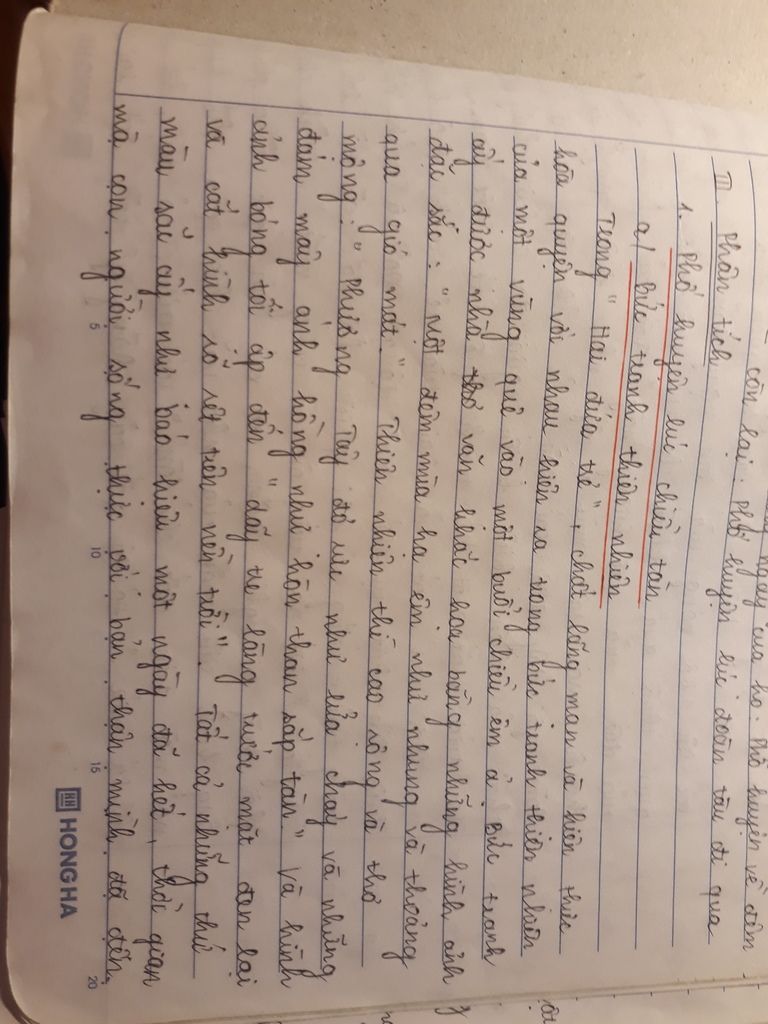 ngày của họ. Phố huyện về đêm
còn lại: Phố huyện lúc đoàn tàu đi qua
III. Phân tích
1. Phố huyện lúc chiều tàn
a/ Bức tranh thiên nhiên
Trong "Hai đứa trẻ", chất lãng mạn và hiện thực
hòa quyện với nhau hiện ra trong bức tranh thiên nhiên
của một vùng quê vào một buổi chiều êm ả. Bức tranh
ấy được nhà thơ văn khắc họa bằng những hình ảnh
đặc sắc: "một đêm mùa hạ êm như nhung và thoảng
qua gió mát." Thiên nhiên thì cao rộng và thơ
mộng: "Phương Tây đỏ rực như lửa cháy và những
đám mây ánh hồng như hòn than sắp tàn" và hình
ảnh bóng tối ập đến "dãy tre làng trước mặt đen lại
và cắt hình rõ rệt trên nền trời". Tất cả những thứ
màu sắc ấy như báo hiệu một ngày đã hết, thời gian
mà con người sống thực với bản thân mình đã đến.
5
10
15
20
HONG HA